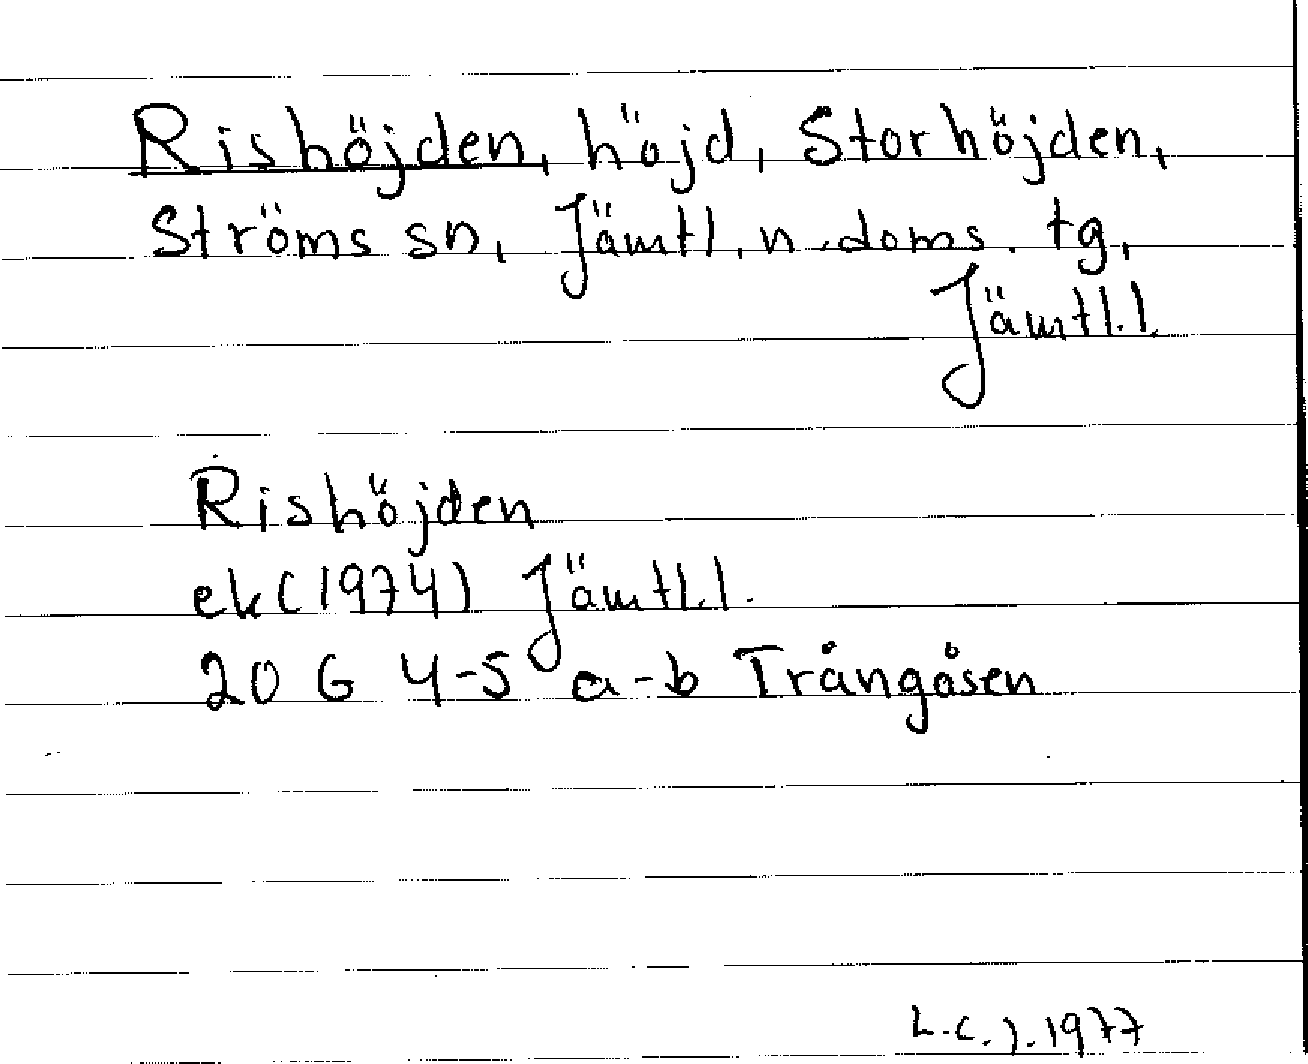 Rishöjden, höjd, Storhöjden,
Ströms sn, Jämtl, n. doms. tg,
Jämtl.l.
Rishöjden
ek (1974) Jämtl.l.
20 G 4-5 a-b Trångåsen
L.C.J. 1977